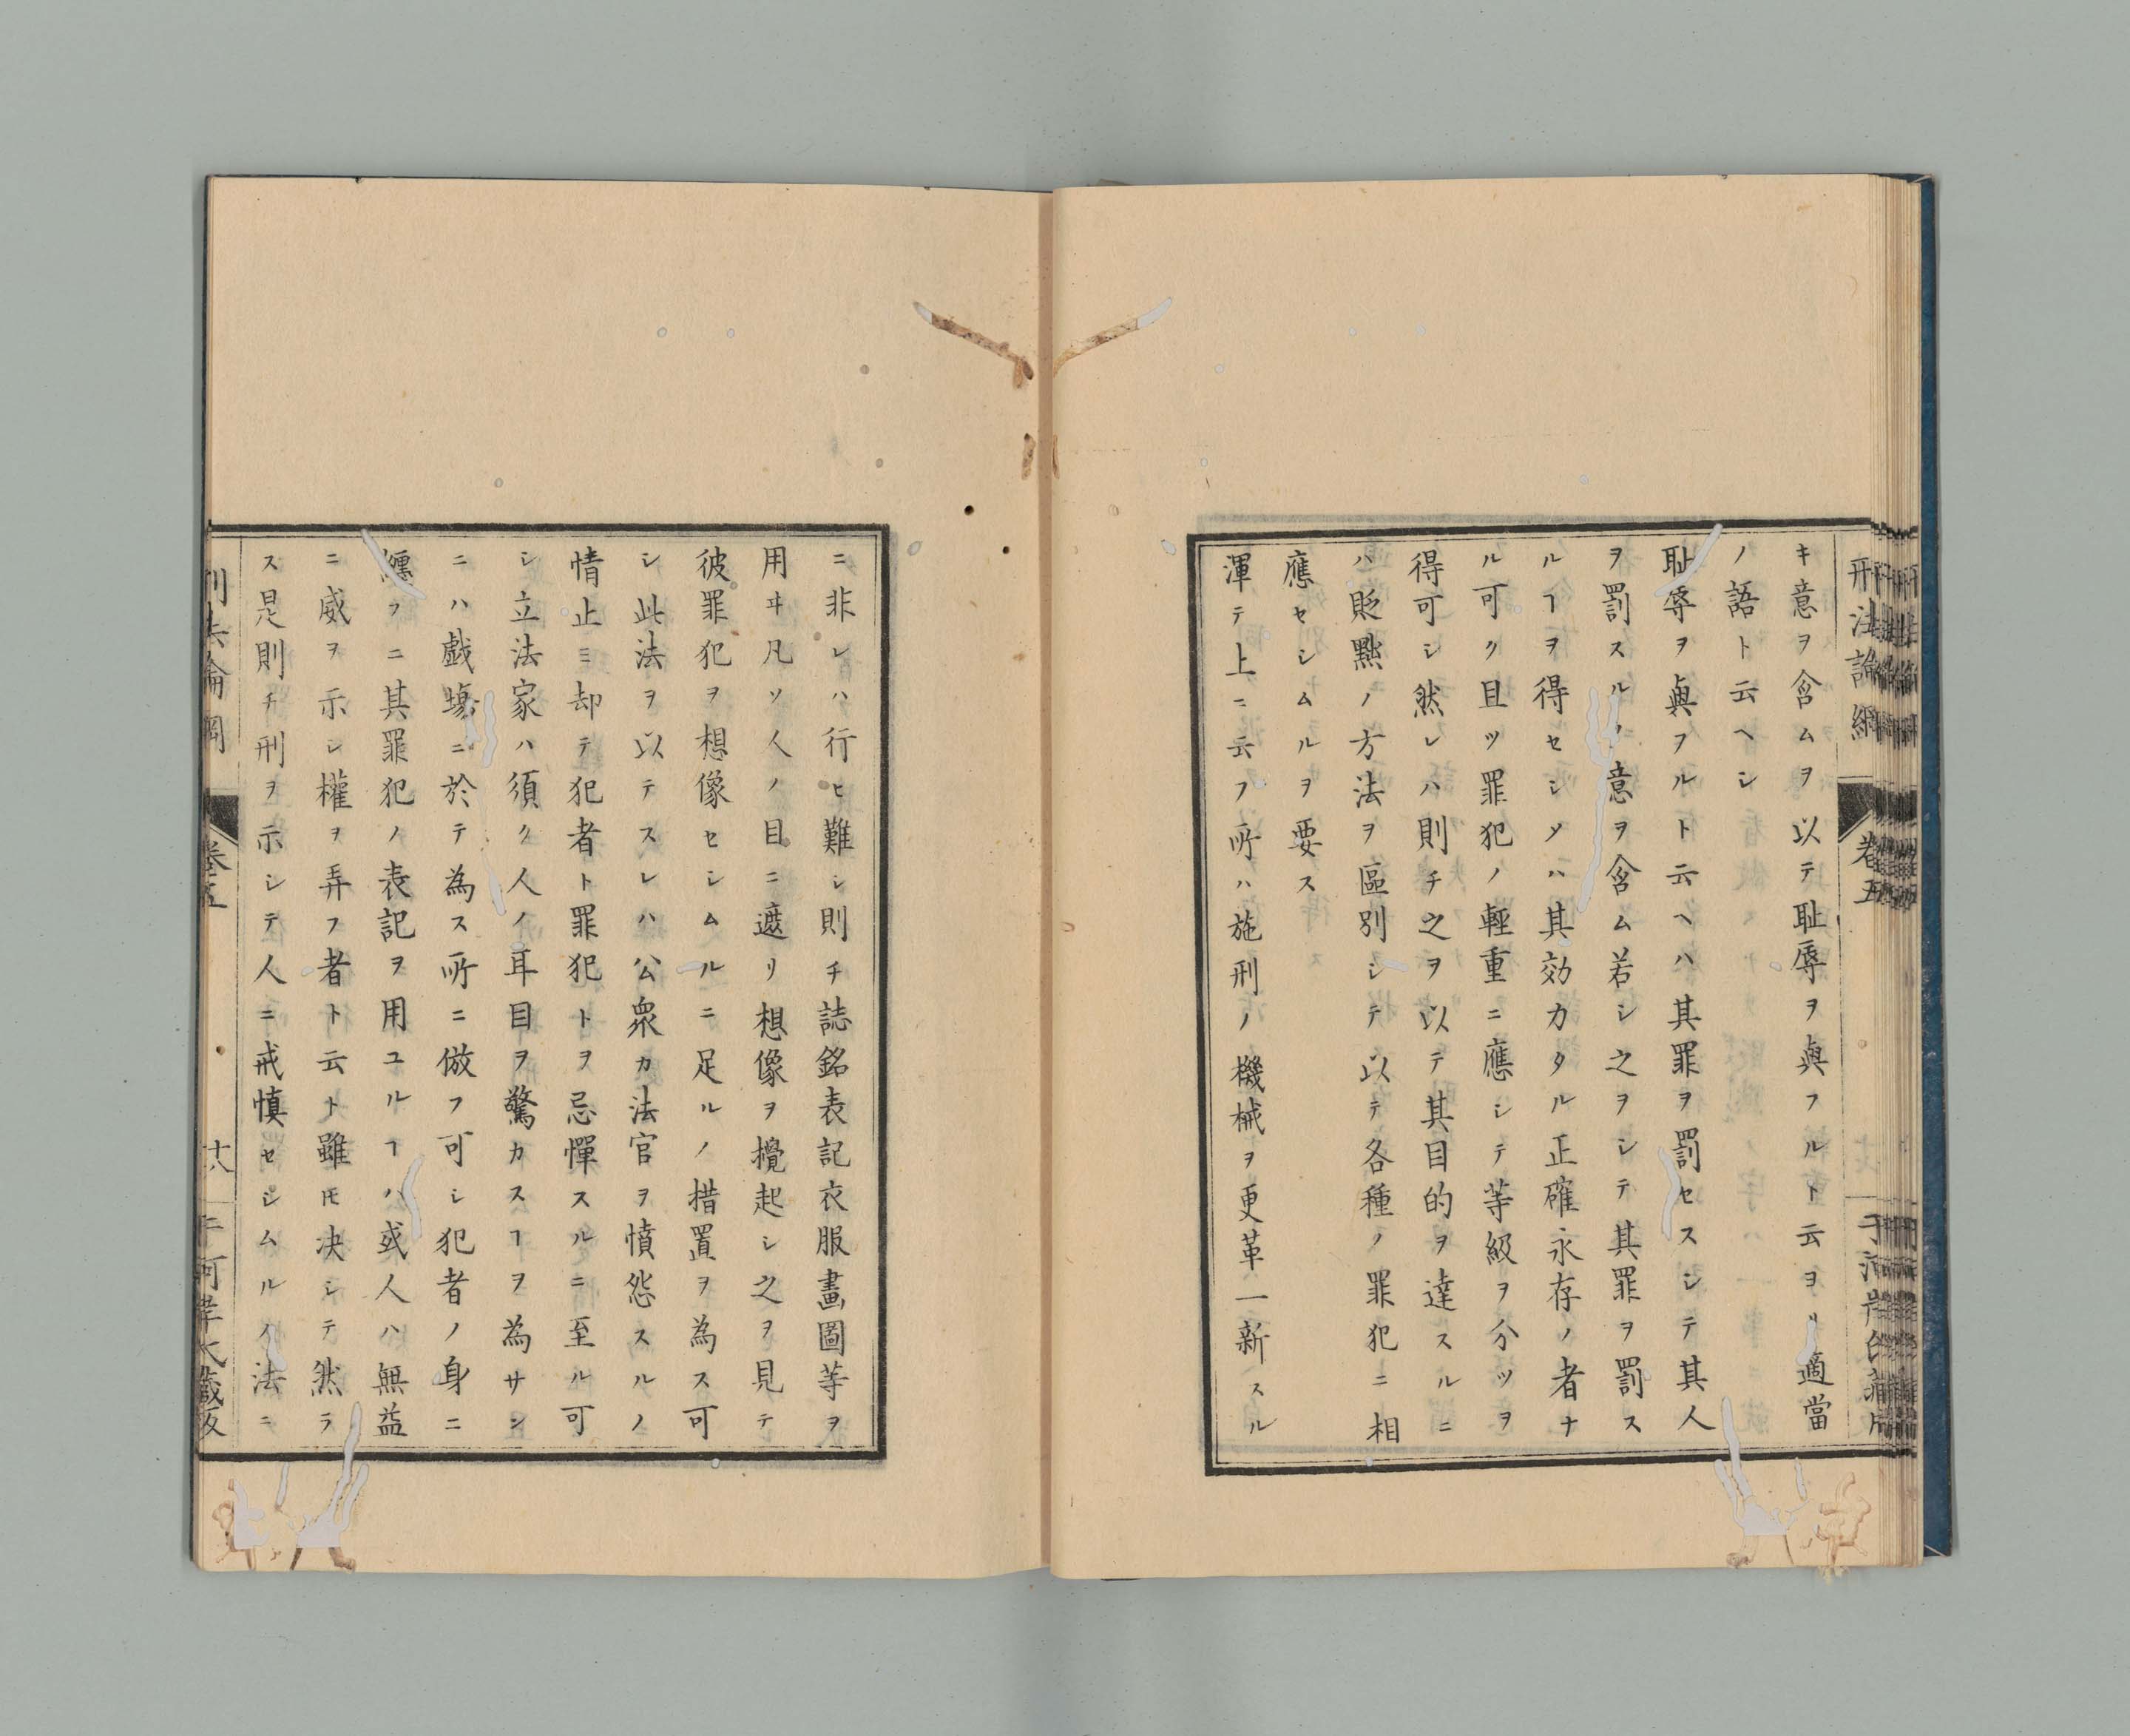 刑法論綱
卷五
キ意ヲ含ムヲ以テ耻辱ヲ與フルト云ヨリ適當
ノ語ト云ヘシ
耻辱ヲ與フルト云ヘハ其罪ヲ罰セスシテ其人
ヲ罰スルノ意ヲ含ム若シ之ヲシテ其罪ヲ罰ス
ルヿヲ得セシメハ其効力タル正確永存ノ者ナ
ル可ク且ツ罪犯ノ輕重ニ應シテ等級ヲ分ツヲ
得可シ然レハ則チ之ヲ以テ其目的ヲ達スルニ
ハ貶黜ノ方法ヲ區別シテ以テ各種ノ罪犯ニ相
應セシムルヲ要ス
渾テ上ニ云フ所ハ施刑ノ機械ヲ更革一新スル
ニ非レハ行ヒ難シ則チ誌銘表記衣服畫圖等ヲ
用ヰ凡ソ人ノ目ニ遮リ想像ヲ攪起シ之ヲ見テ
彼罪犯ヲ想像セシムルニ足ルノ措置ヲ為ス可
シ此法ヲ以テスレハ公衆カ法官ヲ憤怨スルノ
情止ミ却テ犯者ト罪犯トヲ忌憚スルニ至ル可
シ立法家ハ須ク人ノ耳目ヲ驚カスヿヲ為サン
ニハ戯塲ニ於テ為ス所ニ倣フ可シ犯者ノ身ニ
纒フニ其罪犯ノ表記ヲ用ユルヿハ或人ハ無益
ニ威ヲ示シ權ヲ弄フ者ト云ト雖𪜈决シテ然ラ
ス是則チ刑ヲ示シテ人ニ戒慎セシムルノ法ニ
刑法論綱
卷五
十八